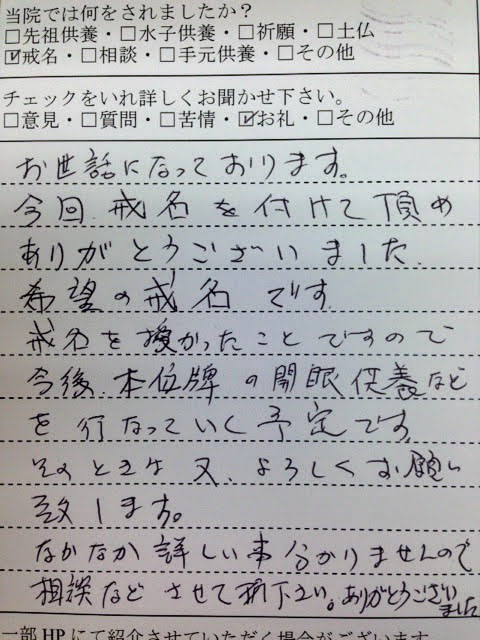 当院では何をされましたか?
□先祖供養・□水子供養・□祈願・□土仏
☑戒名・□相談・□手元供養・□その他
チェックをいれ詳しくお聞かせ下さい。
□意見・□質問・□苦情・☑お礼・□その他
お世話になっております。
今回、戒名を付けて頂め
ありがとうございました。
希望の戒名です。
戒名を授かったことですので
今後、本位牌の開眼供養など
を行なっていく予定です。
そのときは又、よろしくお願い
致します。
なかなか詳しい事分かりませんので
相談などさせて下さい。ありがとうござい
ました
一部HPにて紹介させていただく場合がございます